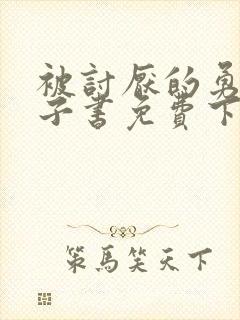 被討厭的勇
子書免費下
策馬笑天下